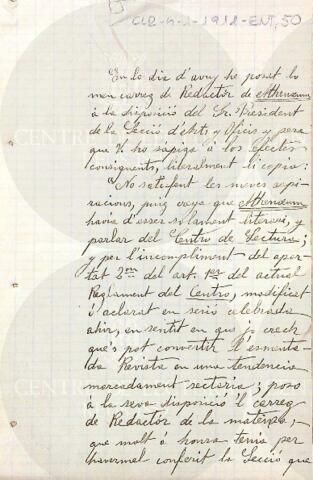 CLR-4-1-1912-ENT, 50
En lo dia d'avuy he posat lo
meu carrec de Redactor de Athenæum
á la disposició del Sr. President
de la Secció d'Arts y Oficis y pera
que V. ho sapiga á los efectes
consiguents, literalment li copio:
"No satisfent les meves aspi-
racions, puig creya que Athenæum
havia d'esser solament literari, y
parlar del Centro de Lectura;
y per l'incompliment del apar-
tat 2on del art. 1er del actual
Reglament del Centro, modificat
ó aclarat en sessió celebrada
ahir, en sentit en que jo crech
qu'es pot convertir l'esmenta-
da Revista en una tendencia
mercadament sectaria; poso
á la seva disposició 'l carreg
de Redactor de la mateixa,
que molt á honra tenia per
haverme'l conferit la Secció que